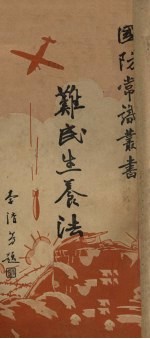 國防常識叢書
難民生養法